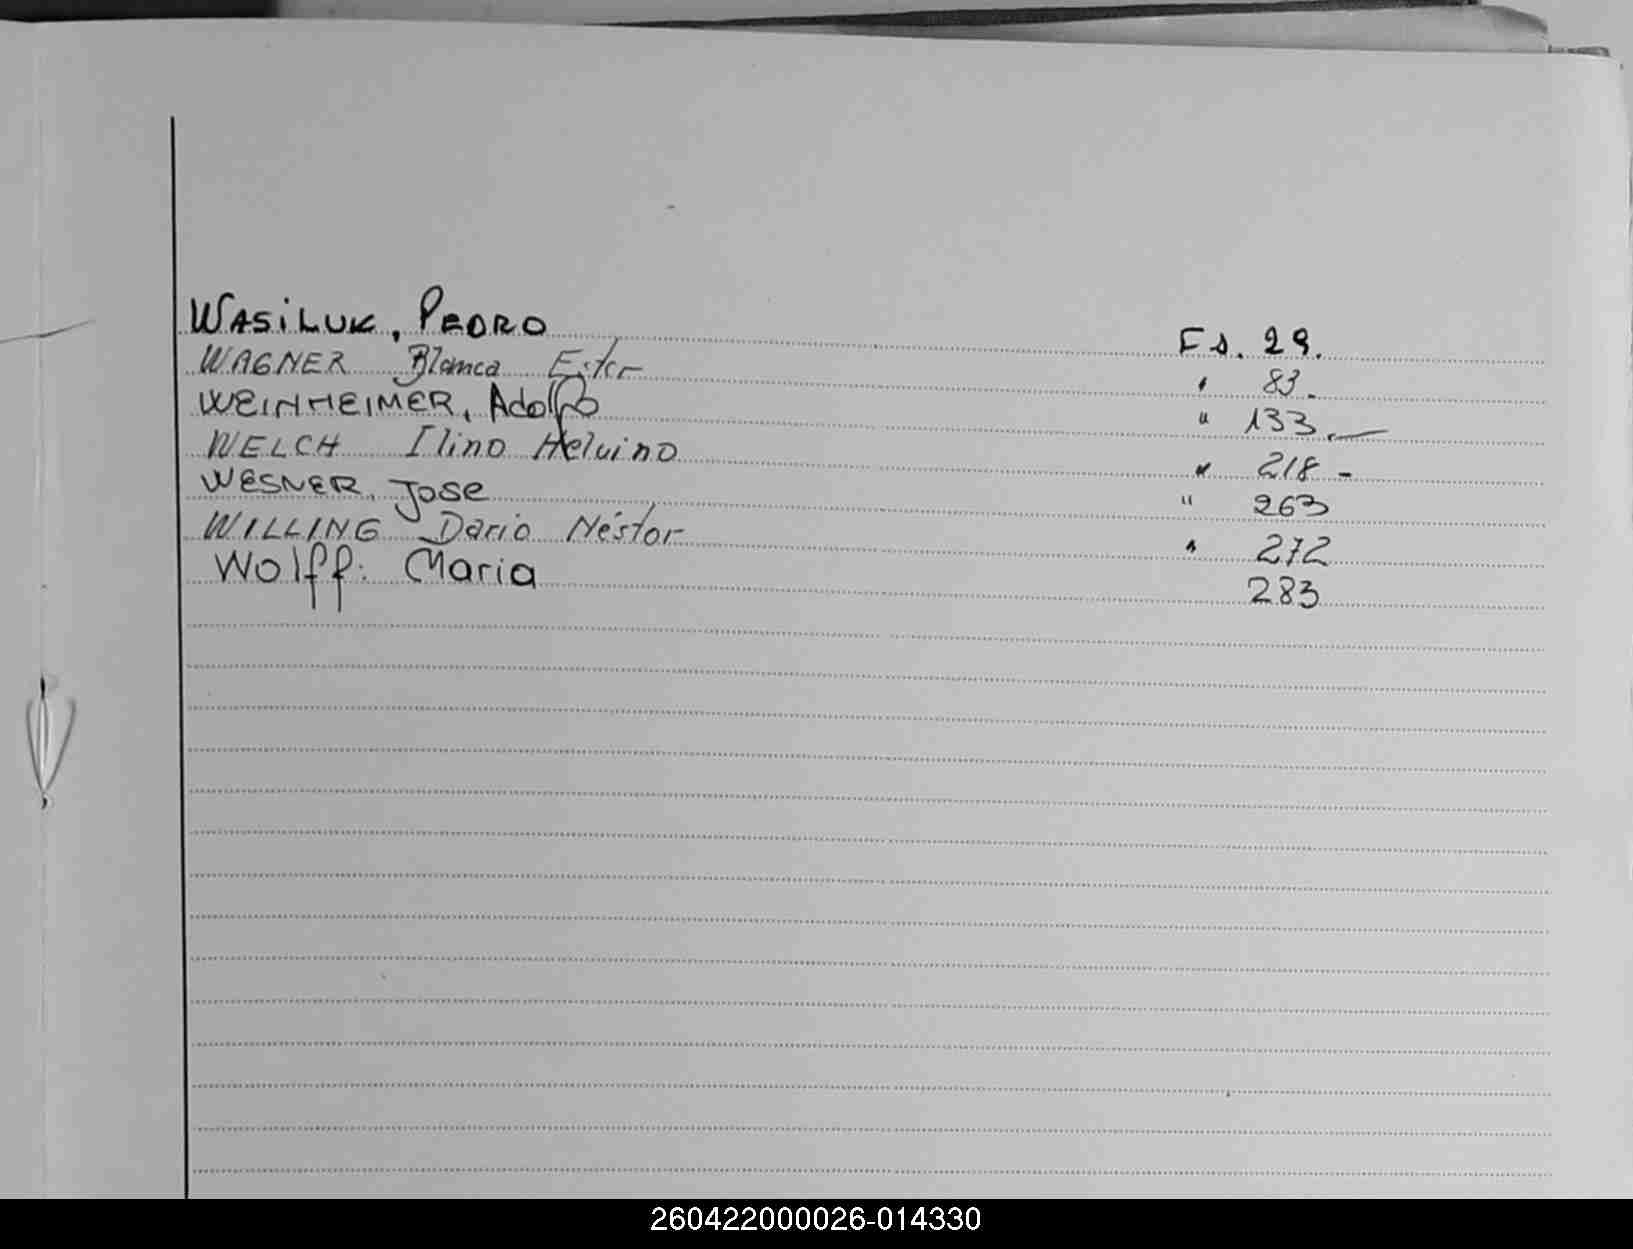 WASILUK, PEDRO Fs. 29.
WAGNER Blanca Ester " 83.
WEINHEIMER, Adolfo " 133.
WELCH Ilino Heluino " 218-
WESNER, Jose " 263
WILLING Dario Néstor " 272
Wolff: Maria 283
260422000026-014330